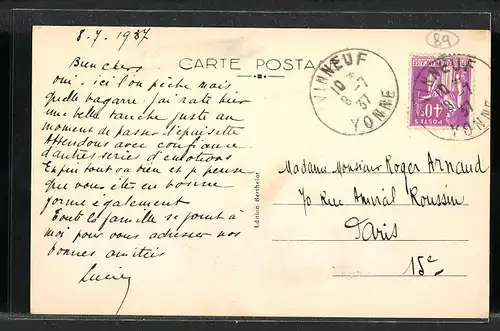 8.7.1937
89
CARTE POSTALE
VINNEUF
10 *
8-7
37
YONNE
VINNEUF
10
8-7
37
YONNE
POSTES
40c
Bien chers
oui. ici l'on pêche mais
quelle bagarre j'ai raté hier
une belle tanche juste au
moment de passer l'épuisette
Attendons avec confiance
d'autres séries d'émotions
Enfin tout va bien et je pense
que vous êtes en bonne
forme également
Toute la famille se joint à
moi pour vous adresser nos
bonnes amitiés
Lucien
Edition Berthelot
Madame Monsieur Roger Arnaud
70 Rue Amiral Roussin
Paris
15e